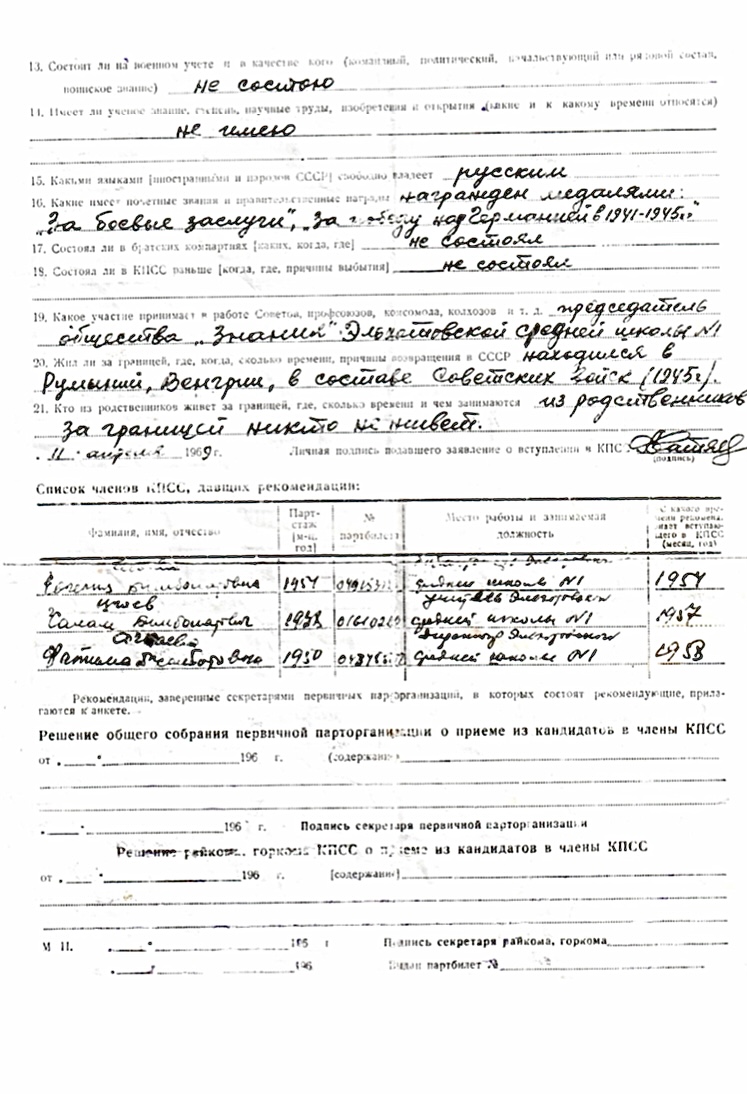 13. Состоит ли на военном учете и в качестве кого (командный, политический, начальствующий или рядовой состав,
воинское звание) не состою
14. Имеет ли ученое звание, степень, научные труды, изобретения и открытия (какие и к какому времени относятся)
не имею
15. Какими языками [иностранными и народов СССР] свободно владеет русским
16. Какие имеет почетные звания и правительственные награды награжден медалями:
„За боевые заслуги", „За победу над Германией в 1941-1945г."
17. Состоял ли в братских компартиях [каких, когда, где] не состоял
18. Состоял ли в КПСС раньше [когда, где, причины выбытия] не состоял
19. Какое участие принимает в работе Советов, профсоюзов, комсомола, колхозов и т. д. председатель
общества „Знания" Эльхотовской средней школы N1
20. Жил ли за границей, где, когда, сколько времени, причины возвращения в СССР находился в
Румынии, Венгрии, в составе Советских войск (1945г.).
21. Кто из родственников живет за границей, где, сколько времени и чем занимаются из родственников
за границей никто не живет.
„11" апреля 1969 г. Личная подпись подавшего заявление о вступлении в КПСС
(подпись)
Список членов КПСС, давших рекомендации:
Фамилия, имя, отчество
Парт-стаж [м-ц, год]
№ партбилета
Место работы и занимаемая должность
С какого времени рекомендует вступающего в КПСС (месяц, год)
1954 средней школы N1 1954
Бимболатович 1938 средней школы N1 1957
Фатима 1950 директор средней школы N1 1958
Рекомендации, заверенные секретарями первичных парторганизаций, в которых состоят рекомендующие, прила-
гаются к анкете.
Решение общего собрания первичной парторганизации о приеме из кандидатов в члены КПСС
от „ " 196 г. (содержание)
„ " 196 г. Подпись секретаря первичной парторганизации
Решение райкома, горкома КПСС о приеме из кандидатов в члены КПСС
от „ " 196 г. [содержание]
М П. „ " 196 г Подпись секретаря райкома, горкома
„ " 196 Выдан партбилет №